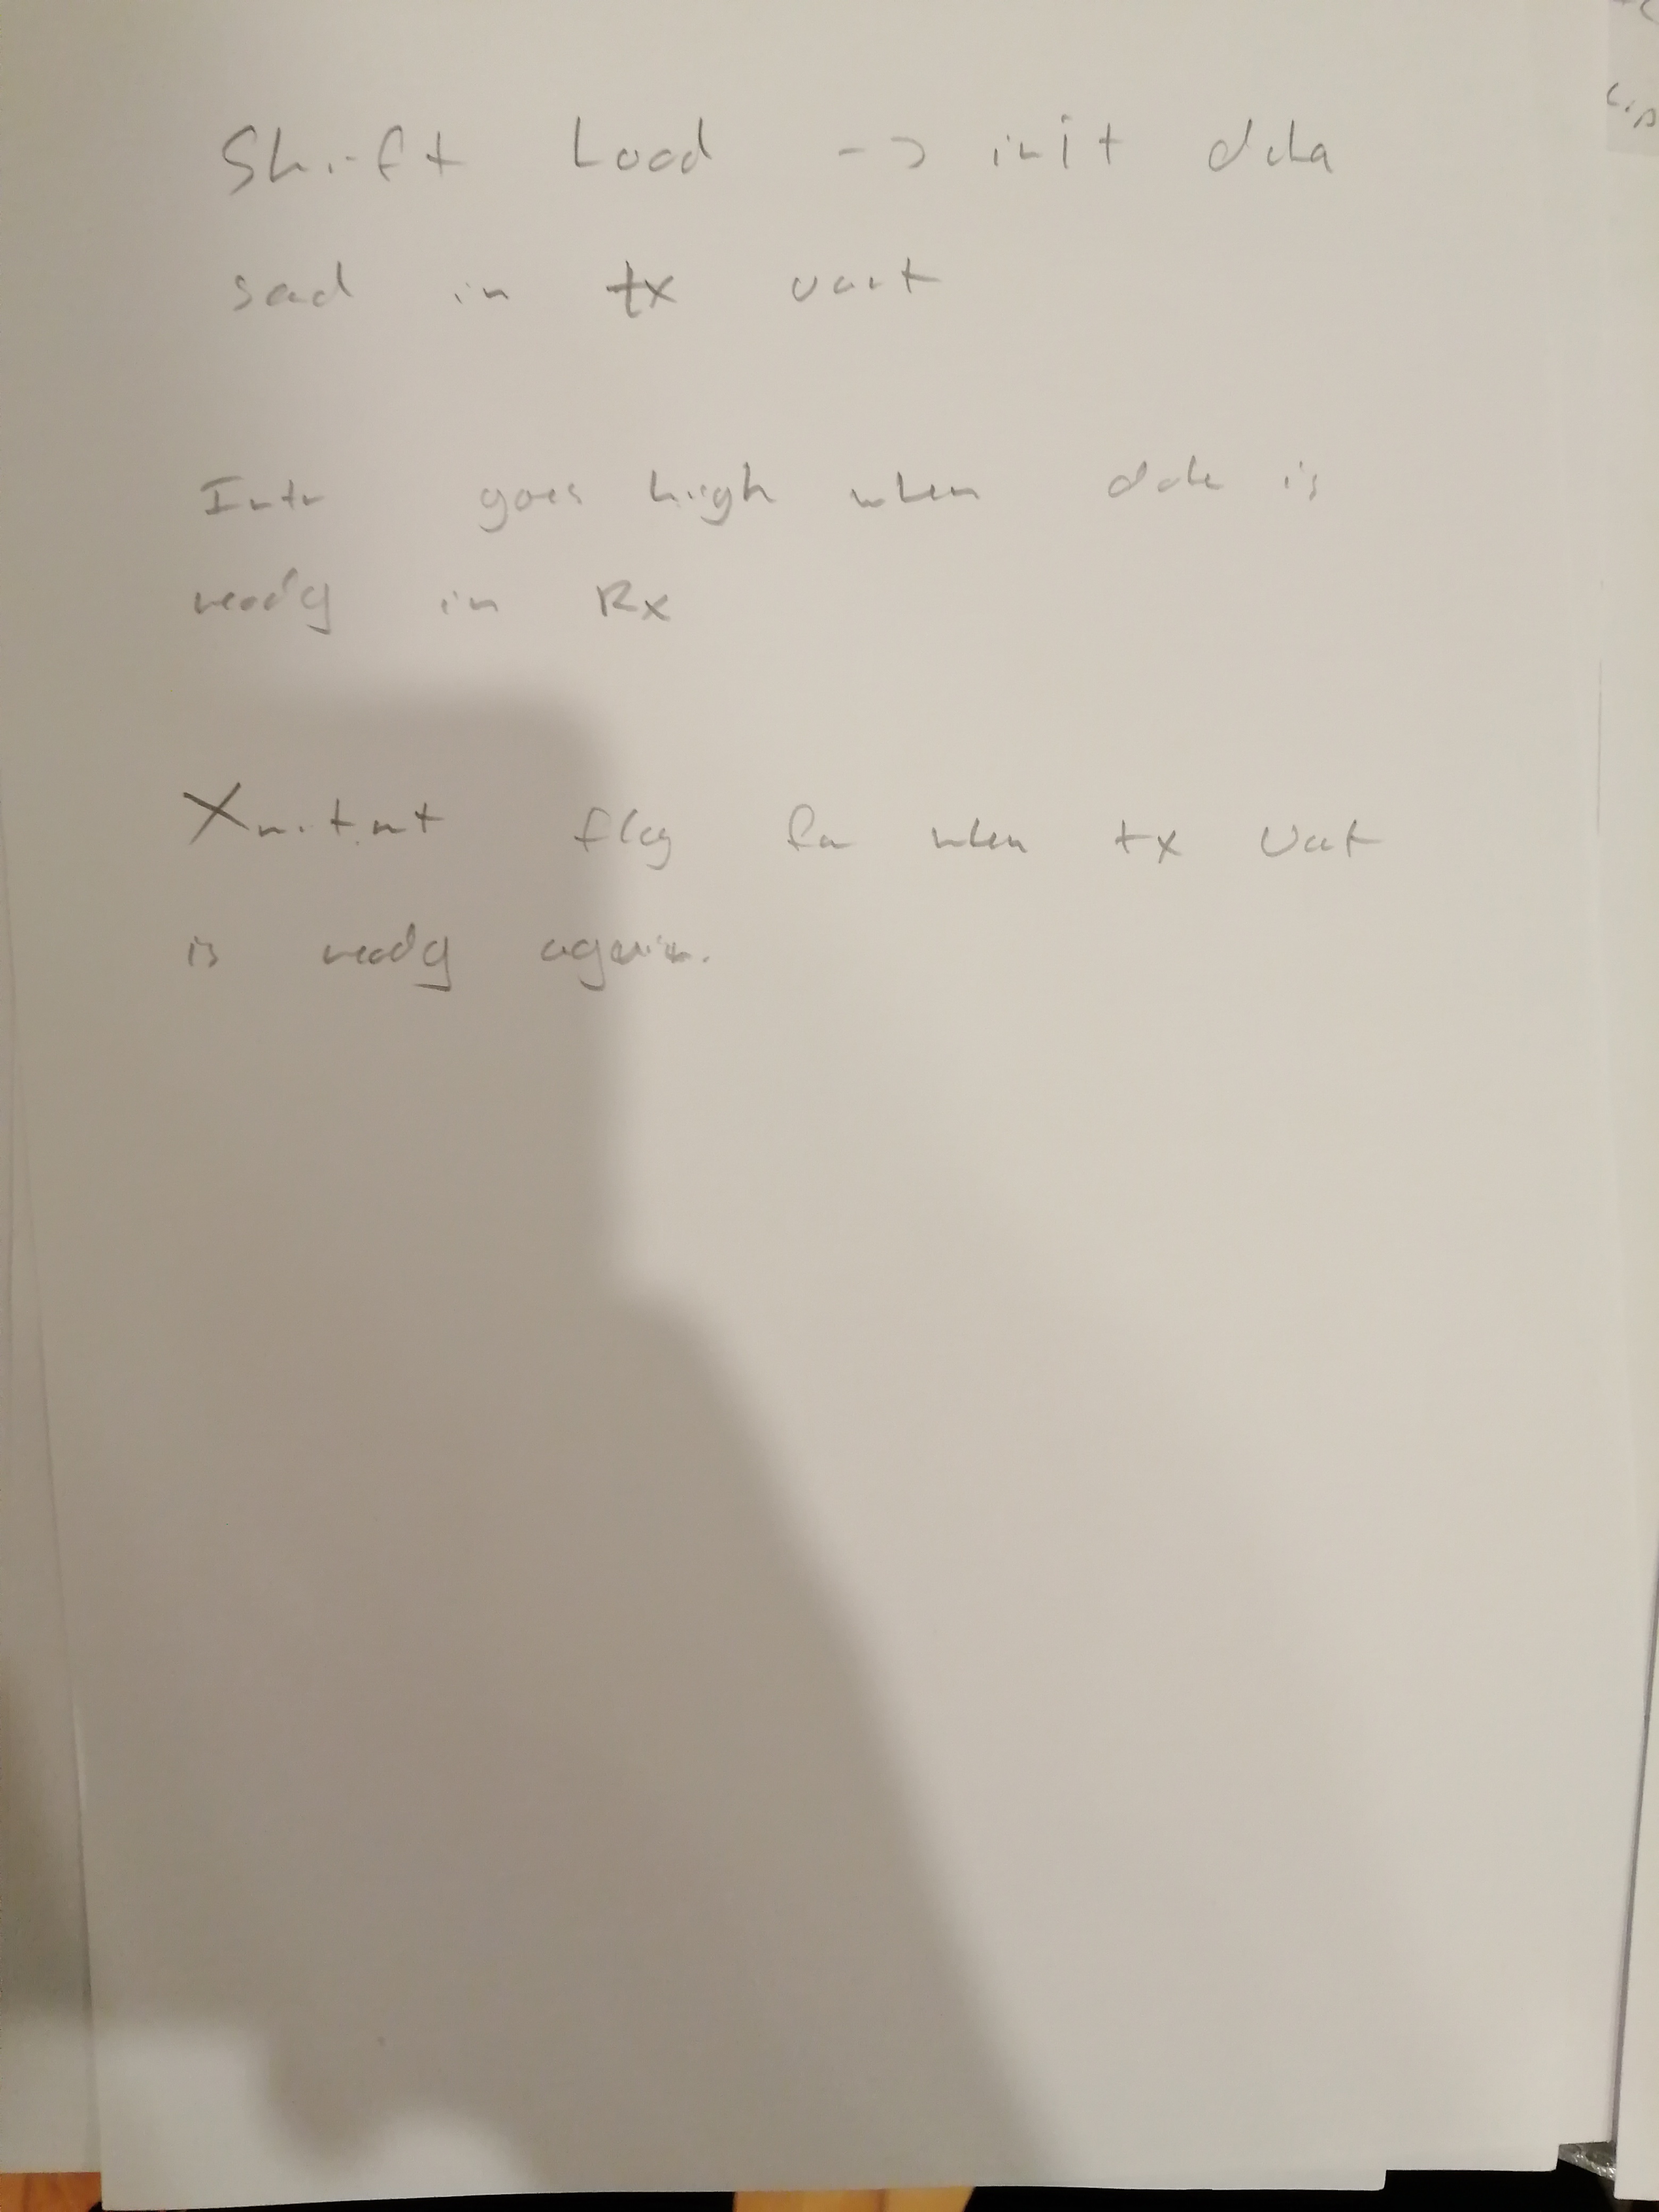 Shift Load -> init data
send in tx uart
Intr goes high when data is
ready in Rx
flag for when tx Uart
is ready again.